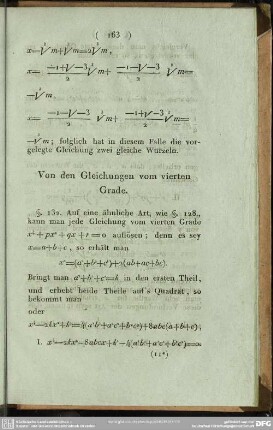 ( 163 )
x=∛m+∛m=2∛m,
x= (−1+√−3)/2 ∛m+ (−1−√−3)/2 ∛m=
−∛m,
x= (−1−√−3)/2 ∛m+ (−1+√−3)/2 ∛m=
−∛m; folglich hat in diesem Falle die vor-
gelegte Gleichung zwei gleiche Wurzeln.
Von den Gleichungen vom vierten
Grade.
§. 132. Auf eine ähnliche Art, wie §. 128.,
kann man jede Gleichung vom vierten Grade
x⁴+px²+qx+r=0 auflösen; denn es sey
x=a+b+c, so erhält man
x²=(a²+b²+c²)+2(ab+ac+bc).
Bringt man a²+b²+c²=k in den ersten Theil,
und erhebt beide Theile auf's Quadrat, so
bekommt man
oder
x⁴−2kx²+k²=4(a²b²+a²c²+b²c²)+8abc(a+b+c),
I. x⁴−2kx²−8abcx+k²−4(a²b²+a²c²+b²c²)=0
(11*)
DFG